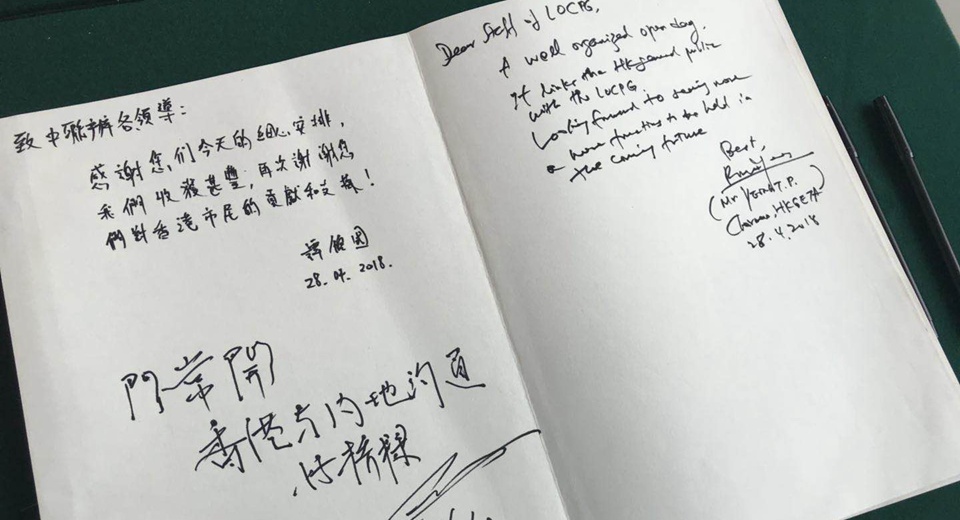 致中聯辦各領導：
感謝您們今天的細心安排，
我們收穫甚豐，再次謝謝您
們對香港市民的貢獻和支持！
28.04.2018.
門常開
香港与内地沟通
的桥樑
Dear Staff of LOCPG,
A well organized open day.
It links the HK general public
with the LOCPG.
Looking forward to seeing more
& more functions to be held in
the coming future
Best,
(Mr T.P.
Chairman, HKGETA
28.4.2018